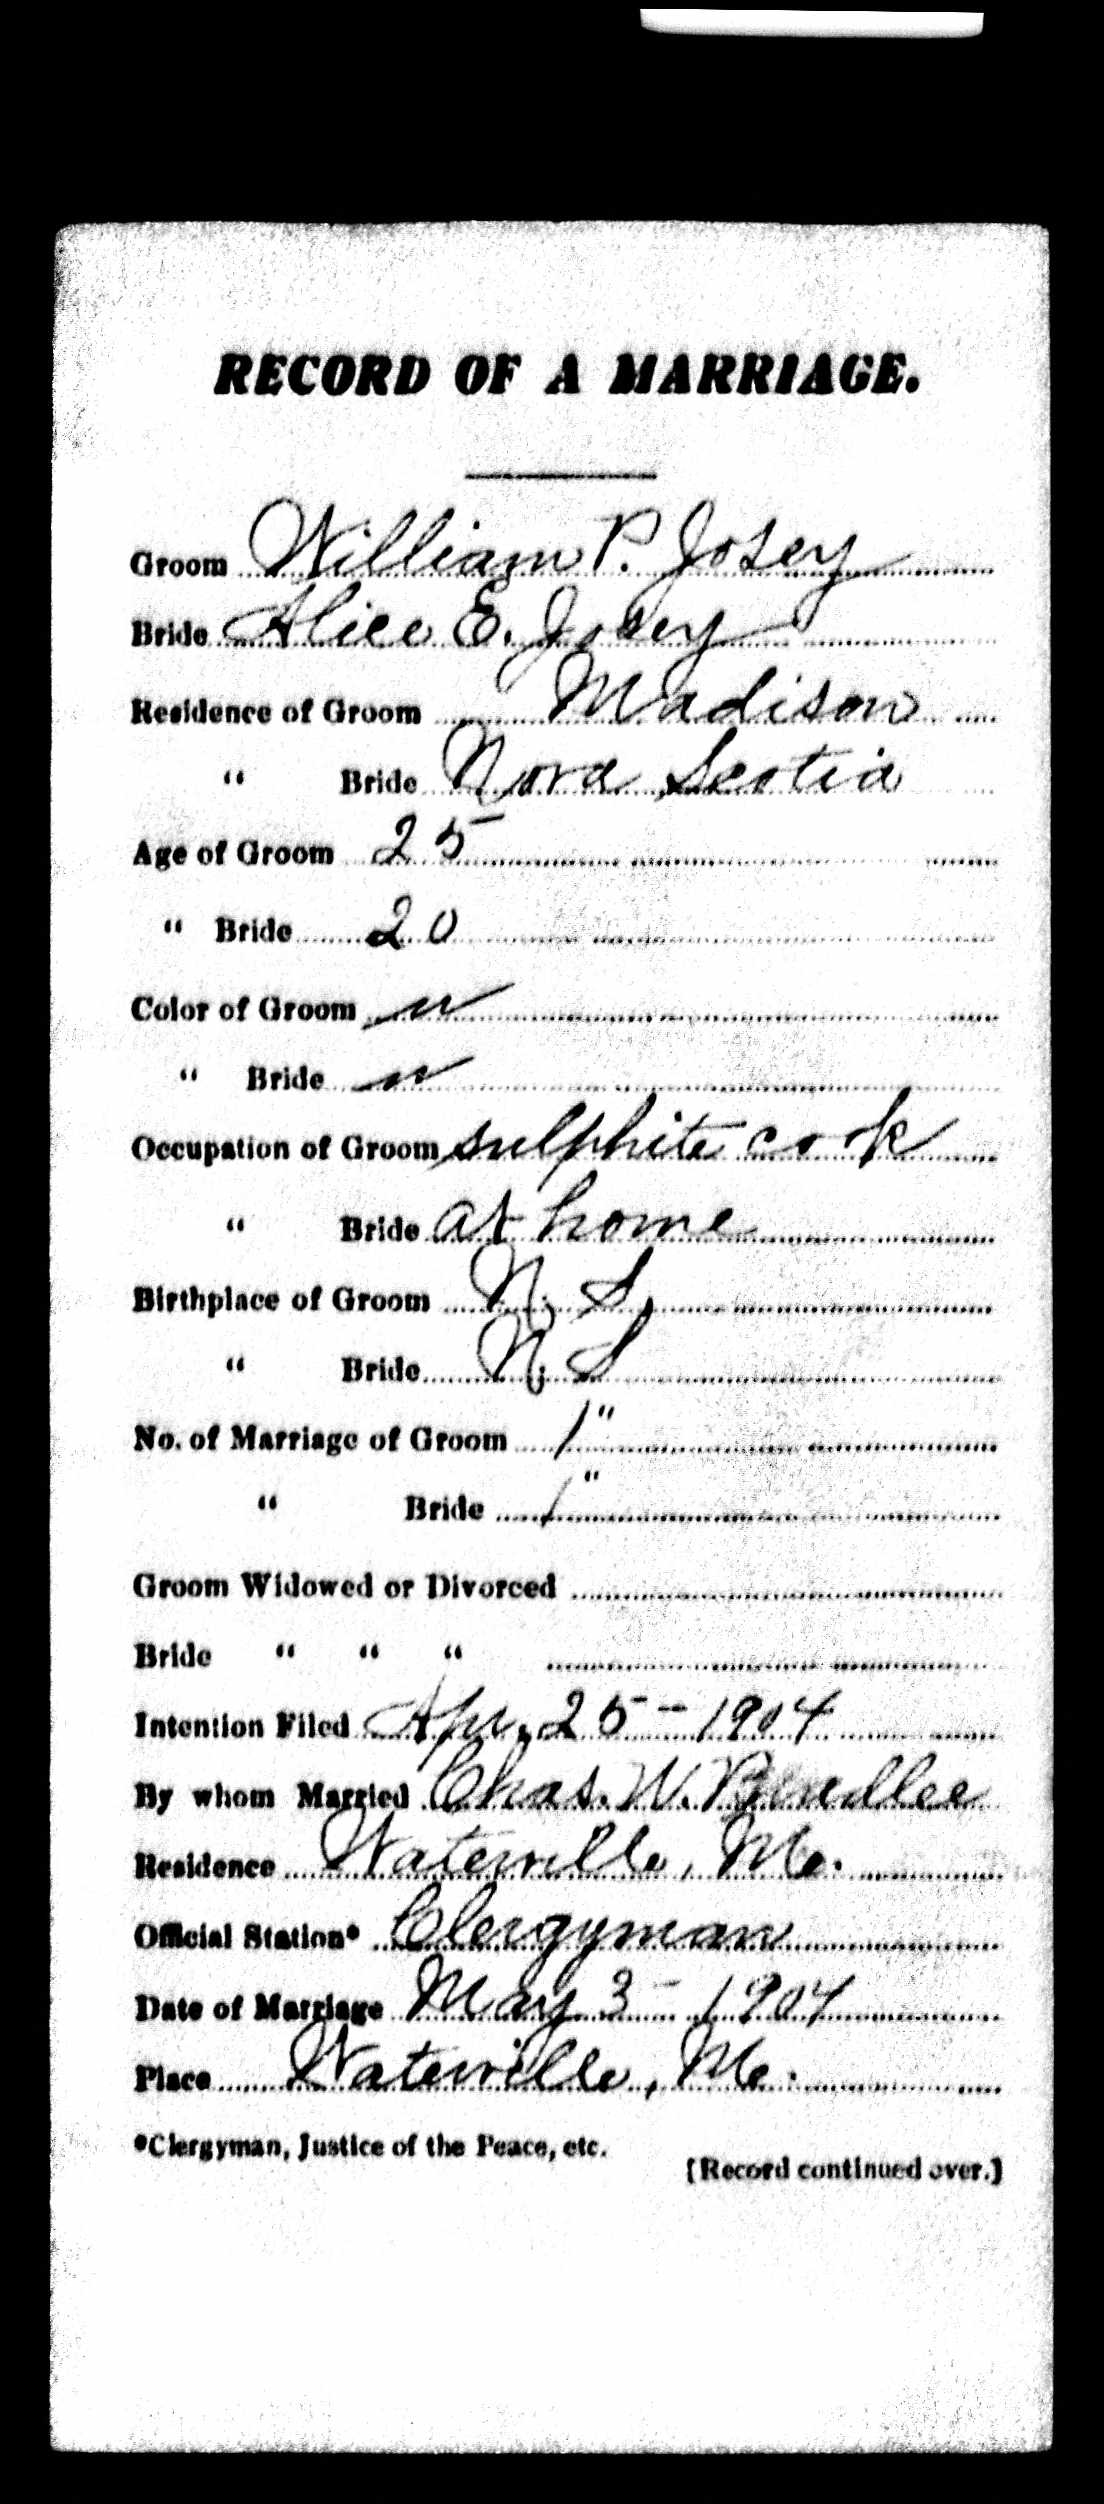 RECORD OF A MARRIAGE.
Groom William P. Josey
Bride Alice E. Josey
Residence of Groom Madison
" Bride Nova Scotia
Age of Groom 25
" Bride 20
Color of Groom w
" Bride w
Occupation of Groom sulphite cook
" Bride at home
Birthplace of Groom N. S.
" Bride N. S
No. of Marriage of Groom 1"
" Bride 1"
Groom Widowed or Divorced
Bride " " "
Intention Filed Apr. 25 - 1904
By whom Married Chas. W.
Residence Waterville, Me.
Official Station* Clergyman
Date of Marriage May 3 - 1904
Place Waterville, Me.
*Clergyman, Justice of the Peace, etc.
[Record continued over.]